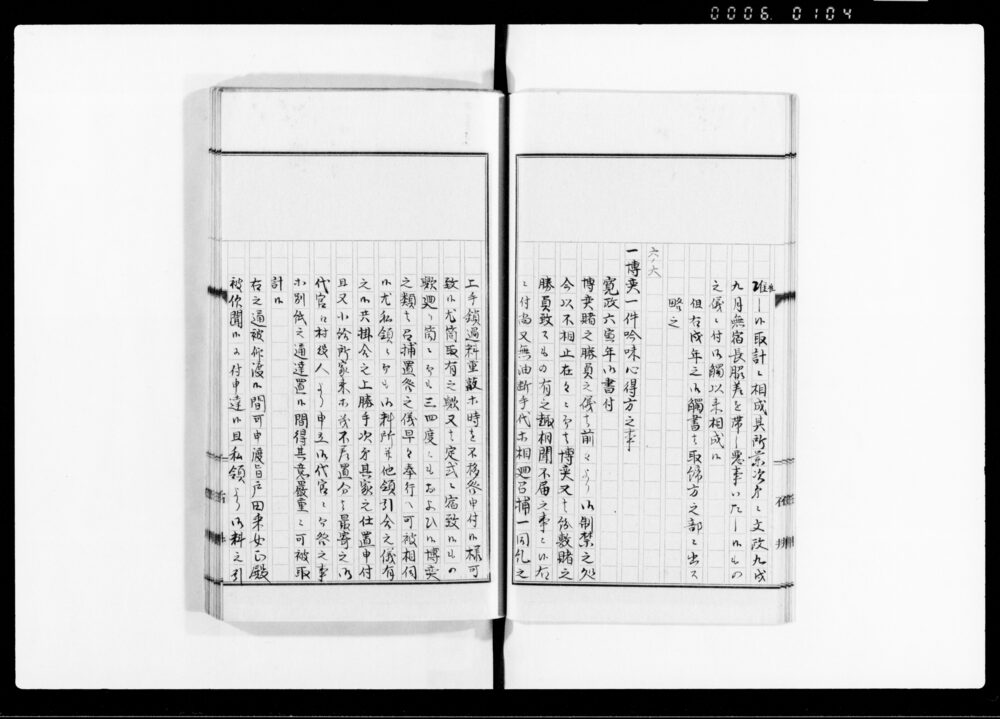 0006. 0104
九月無宿長脇差を帯し悪事いたし候もの
之儀ニ付御触以来相成候
但右戌年之御触書ハ取締方之部ニ出ス
略之
六ノ大
一博奕一件吟味心得方之事
寛政六寅年御書付
博奕賭之勝負之儀ハ前々より御制禁之処
今以不相止在々ニ而ハ博奕又ハ銭数賭之
勝負致候もの有之趣相聞不届之事ニ候右
ニ付尚又無油断手代等相廻召捕一同糺之
上手鎖過料重敲等時を不移咎申付候様可
致候尤筒取有之歟又ハ定式ニ宿致候もの
歟廻り筒ニ而も三四度にもおよひ候博奕
之類ハ召捕置咎之儀早々奉行へ可被相伺
候尤私領ニ而も御料所并他領引合之儀有
之候共掛合之上勝手次第其家之仕置申付
且又小給所家来等も不差置分ハ最寄之御
代官江村役人より申立御代官ニ而咎之事
等別紙之通達置候間得其意厳重ニ可被取
計候
右之通被仰渡候間可申渡旨戸田采女正殿
被仰聞候ニ付申達候且私領より御料之引